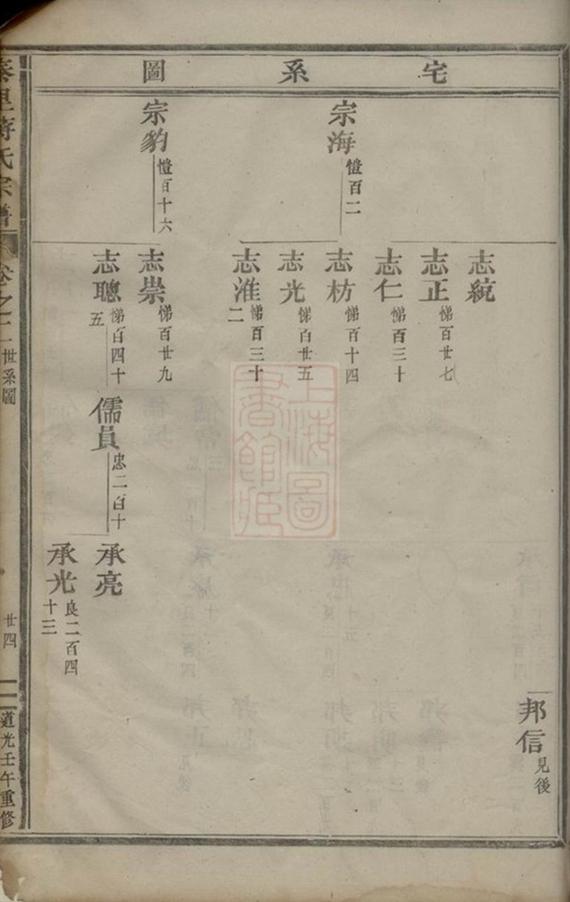 宅系圖
邦信見後
宗海愷百二
志統
志正悌百廿七
志仁悌百三十
志枋悌百十四
志光悌百廿五
志淮悌百三十二
宗豹愷百十六
志崇悌百廿九
志聰悌百四十五
儒員忠二百十
承亮
承光良二百四十三
蔣氏宗譜
卷之二
世系圖
廿四
道光壬午重修
上海圖書館藏